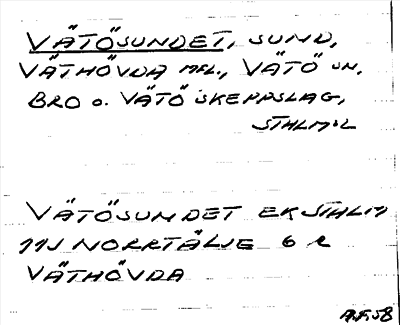 VÄTÖSUNDET, SUND,
VÄTHÖVDA MFL., VÄTÖ SN,
BRO O. VÄTÖ SKEPPSLAG,
STHLMS L
VÄTÖSUNDET EK STHLM
11J NORRTÄLJE 6 R
VÄTHÖVDA
A.F. 58